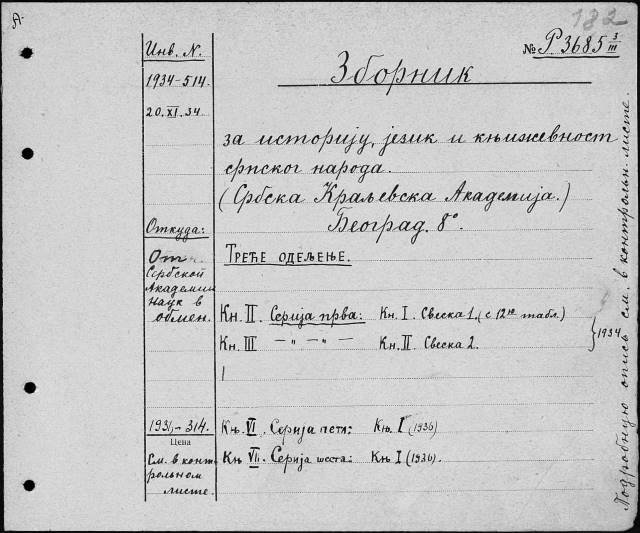 А.
182
№ Р3685 3/III
Инв. N.
1934-514.
20.XI.34.
Зборник
за историју, језик и књижевност
српског народа.
(Србска Краљевска Академија.)
Београд. 8°.
Откуда:
От
Сербской
Академии
наук в
обмен.
Треће одељење.
Кн. II. Серија прва: Кн. I. Свеска 1. (с 12ю табл.)
Кн. III — „ — „ — Кн. II. Свеска 2.
1934
193 -314.
Цена
См. в конт-
рольном
листе.
Књ. VI. Серија пета: Књ. I (1936)
Књ VII. Серија шеста: Књ I (1936).
Подробную опись см. в контрольн. листе.